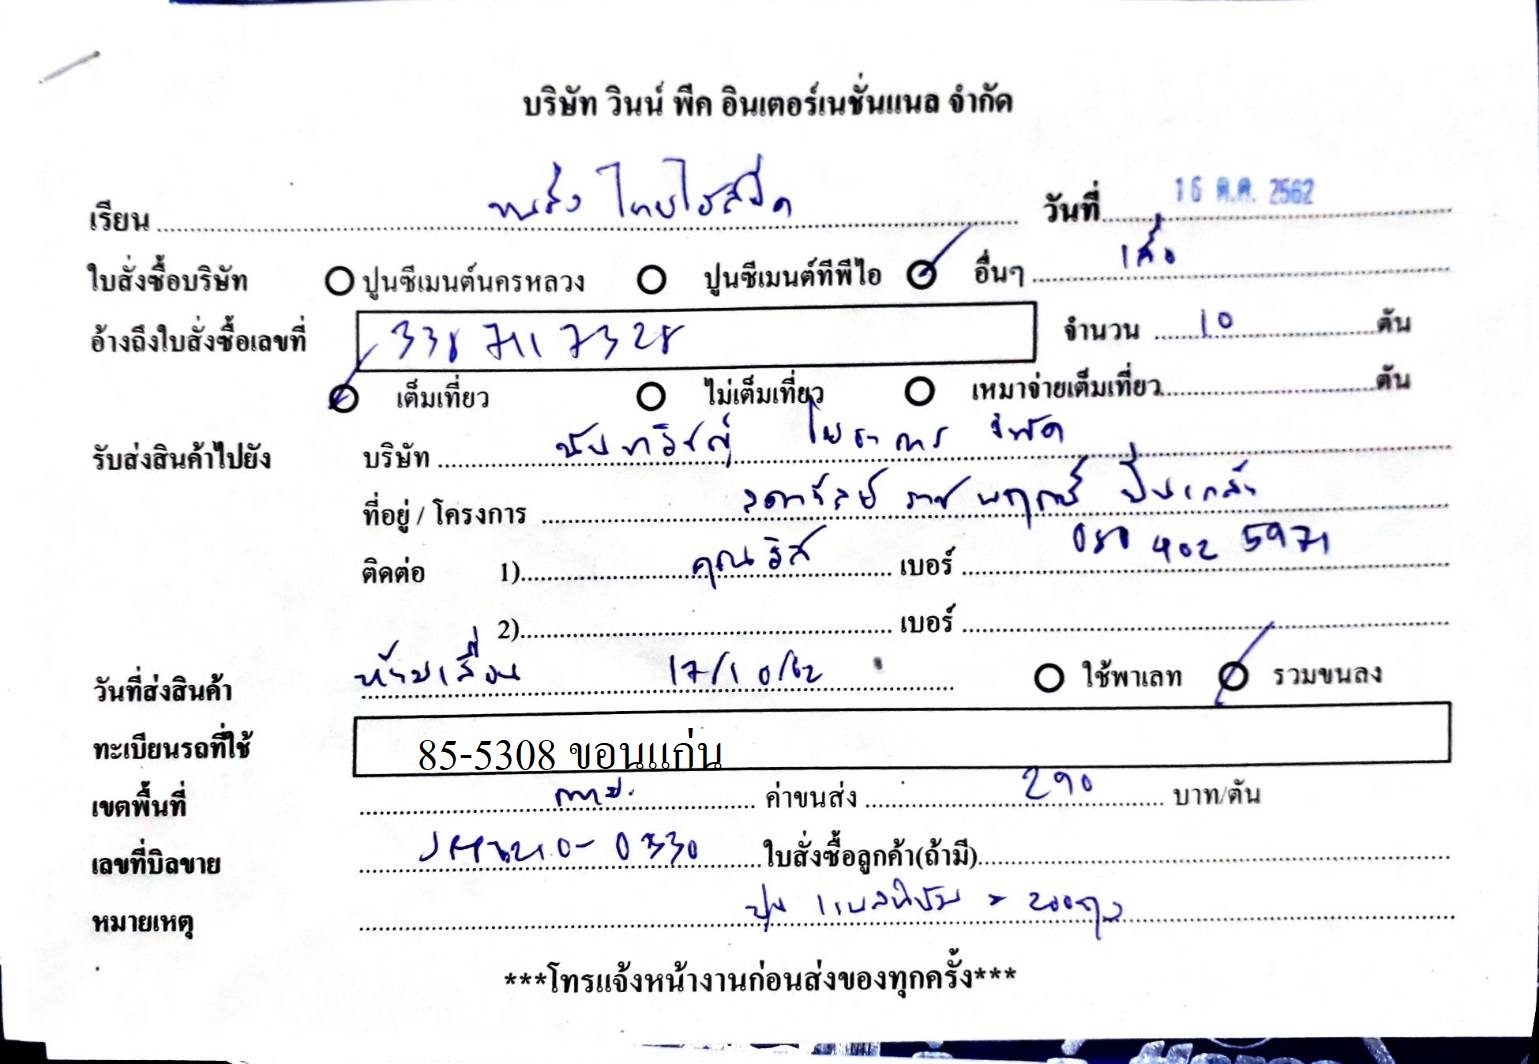 บริษัท วินน์ พีค อินเตอร์เนชั่นแนล จำกัด
เรียน ขนส่ง วันที่ 16 ต.ค. 2562
ใบสั่งซื้อบริษัท ปูนซีเมนต์นครหลวง ปูนซีเมนต์ทีพีไอ อื่นๆ เสือ
อ้างถึงใบสั่งซื้อเลขที่ 3387117328 จำนวน 10 ตัน
เต็มเที่ยว ไม่เต็มเที่ยว เหมาจ่ายเต็มเที่ยว ตัน
รับส่งสินค้าไปยัง บริษัท โยธาการ จำกัด
ที่อยู่ / โครงการ ลดาวัลย์ ราชพฤกษ์ ปิ่นเกล้า
ติดต่อ 1) คุณ เบอร์ 080 402 5971
2) เบอร์
วันที่ส่งสินค้า ห้ามเลื่อน 17/10/62 ใช้พาเลท รวมขนลง
ทะเบียนรถที่ใช้ 85-5308 ขอนแก่น
เขตพื้นที่ ค่าขนส่ง 290 บาท/ตัน
เลขที่บิลขาย 0330 ใบสั่งซื้อลูกค้า(ถ้ามี)
หมายเหตุ ปูน = 200ถุง
***โทรแจ้งหน้างานก่อนส่งของทุกครั้ง***